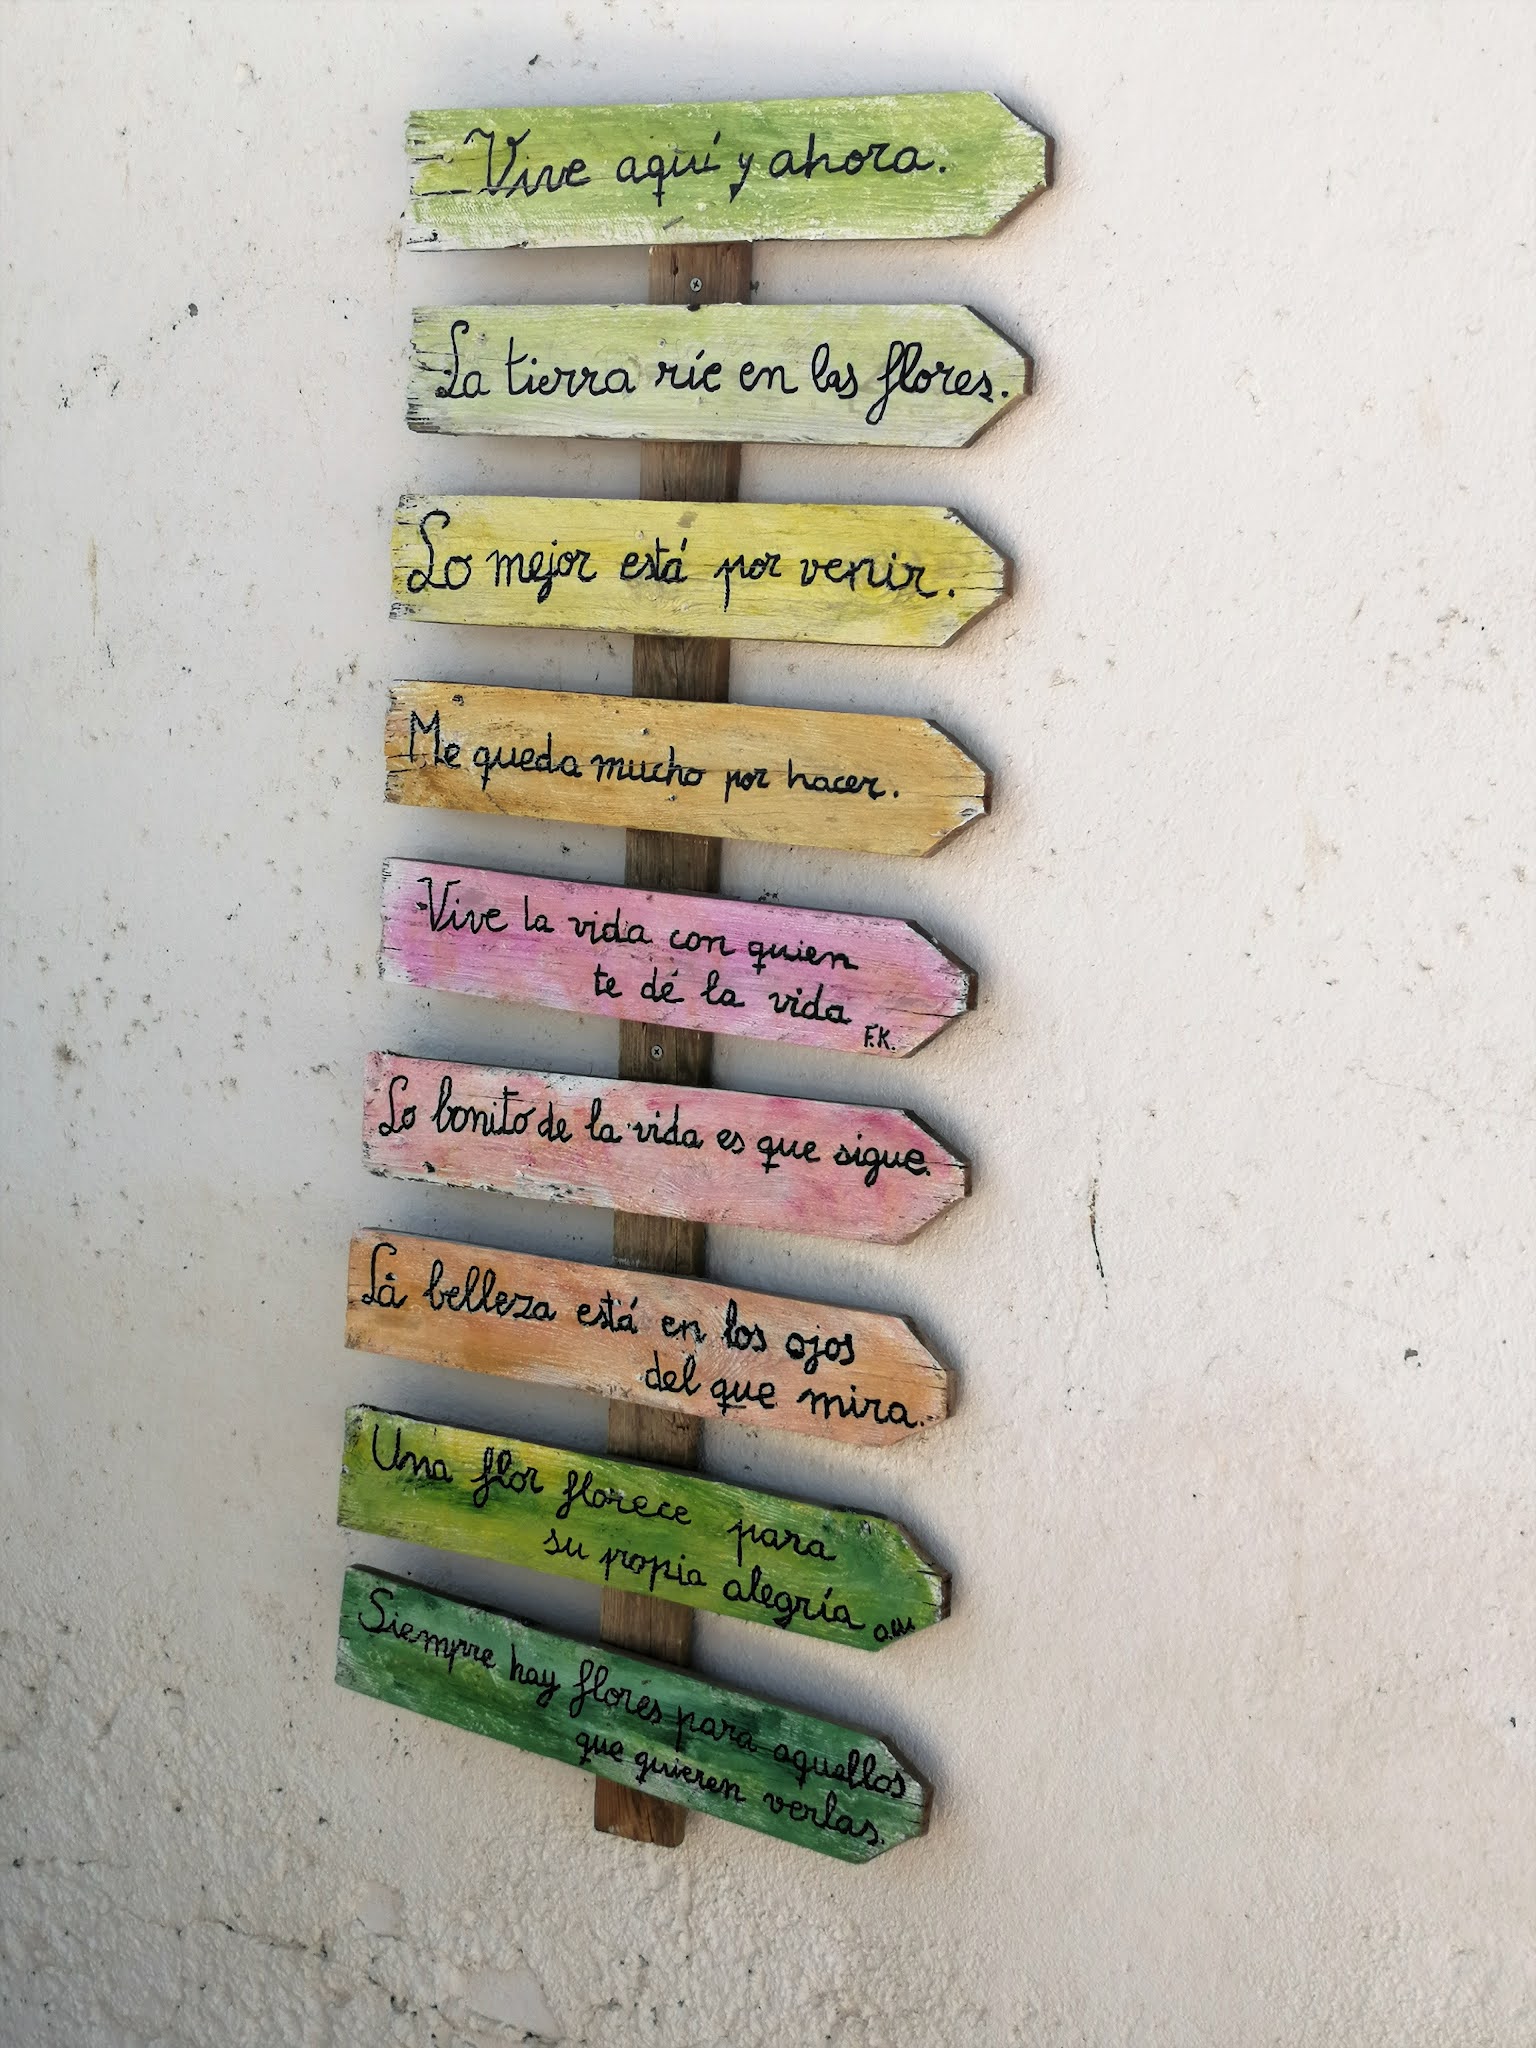 Vive aquí y ahora.
La tierra ríe en las flores.
Lo mejor está por venir.
Me queda mucho por hacer.
Vive la vida con quien
te dé la vida
F.K.
Lo bonito de la vida es que sigue.
La belleza está en los ojos
del que mira.
Una flor florece para
su propia alegría
Siempre hay flores para aquellos
que quieren verlas.